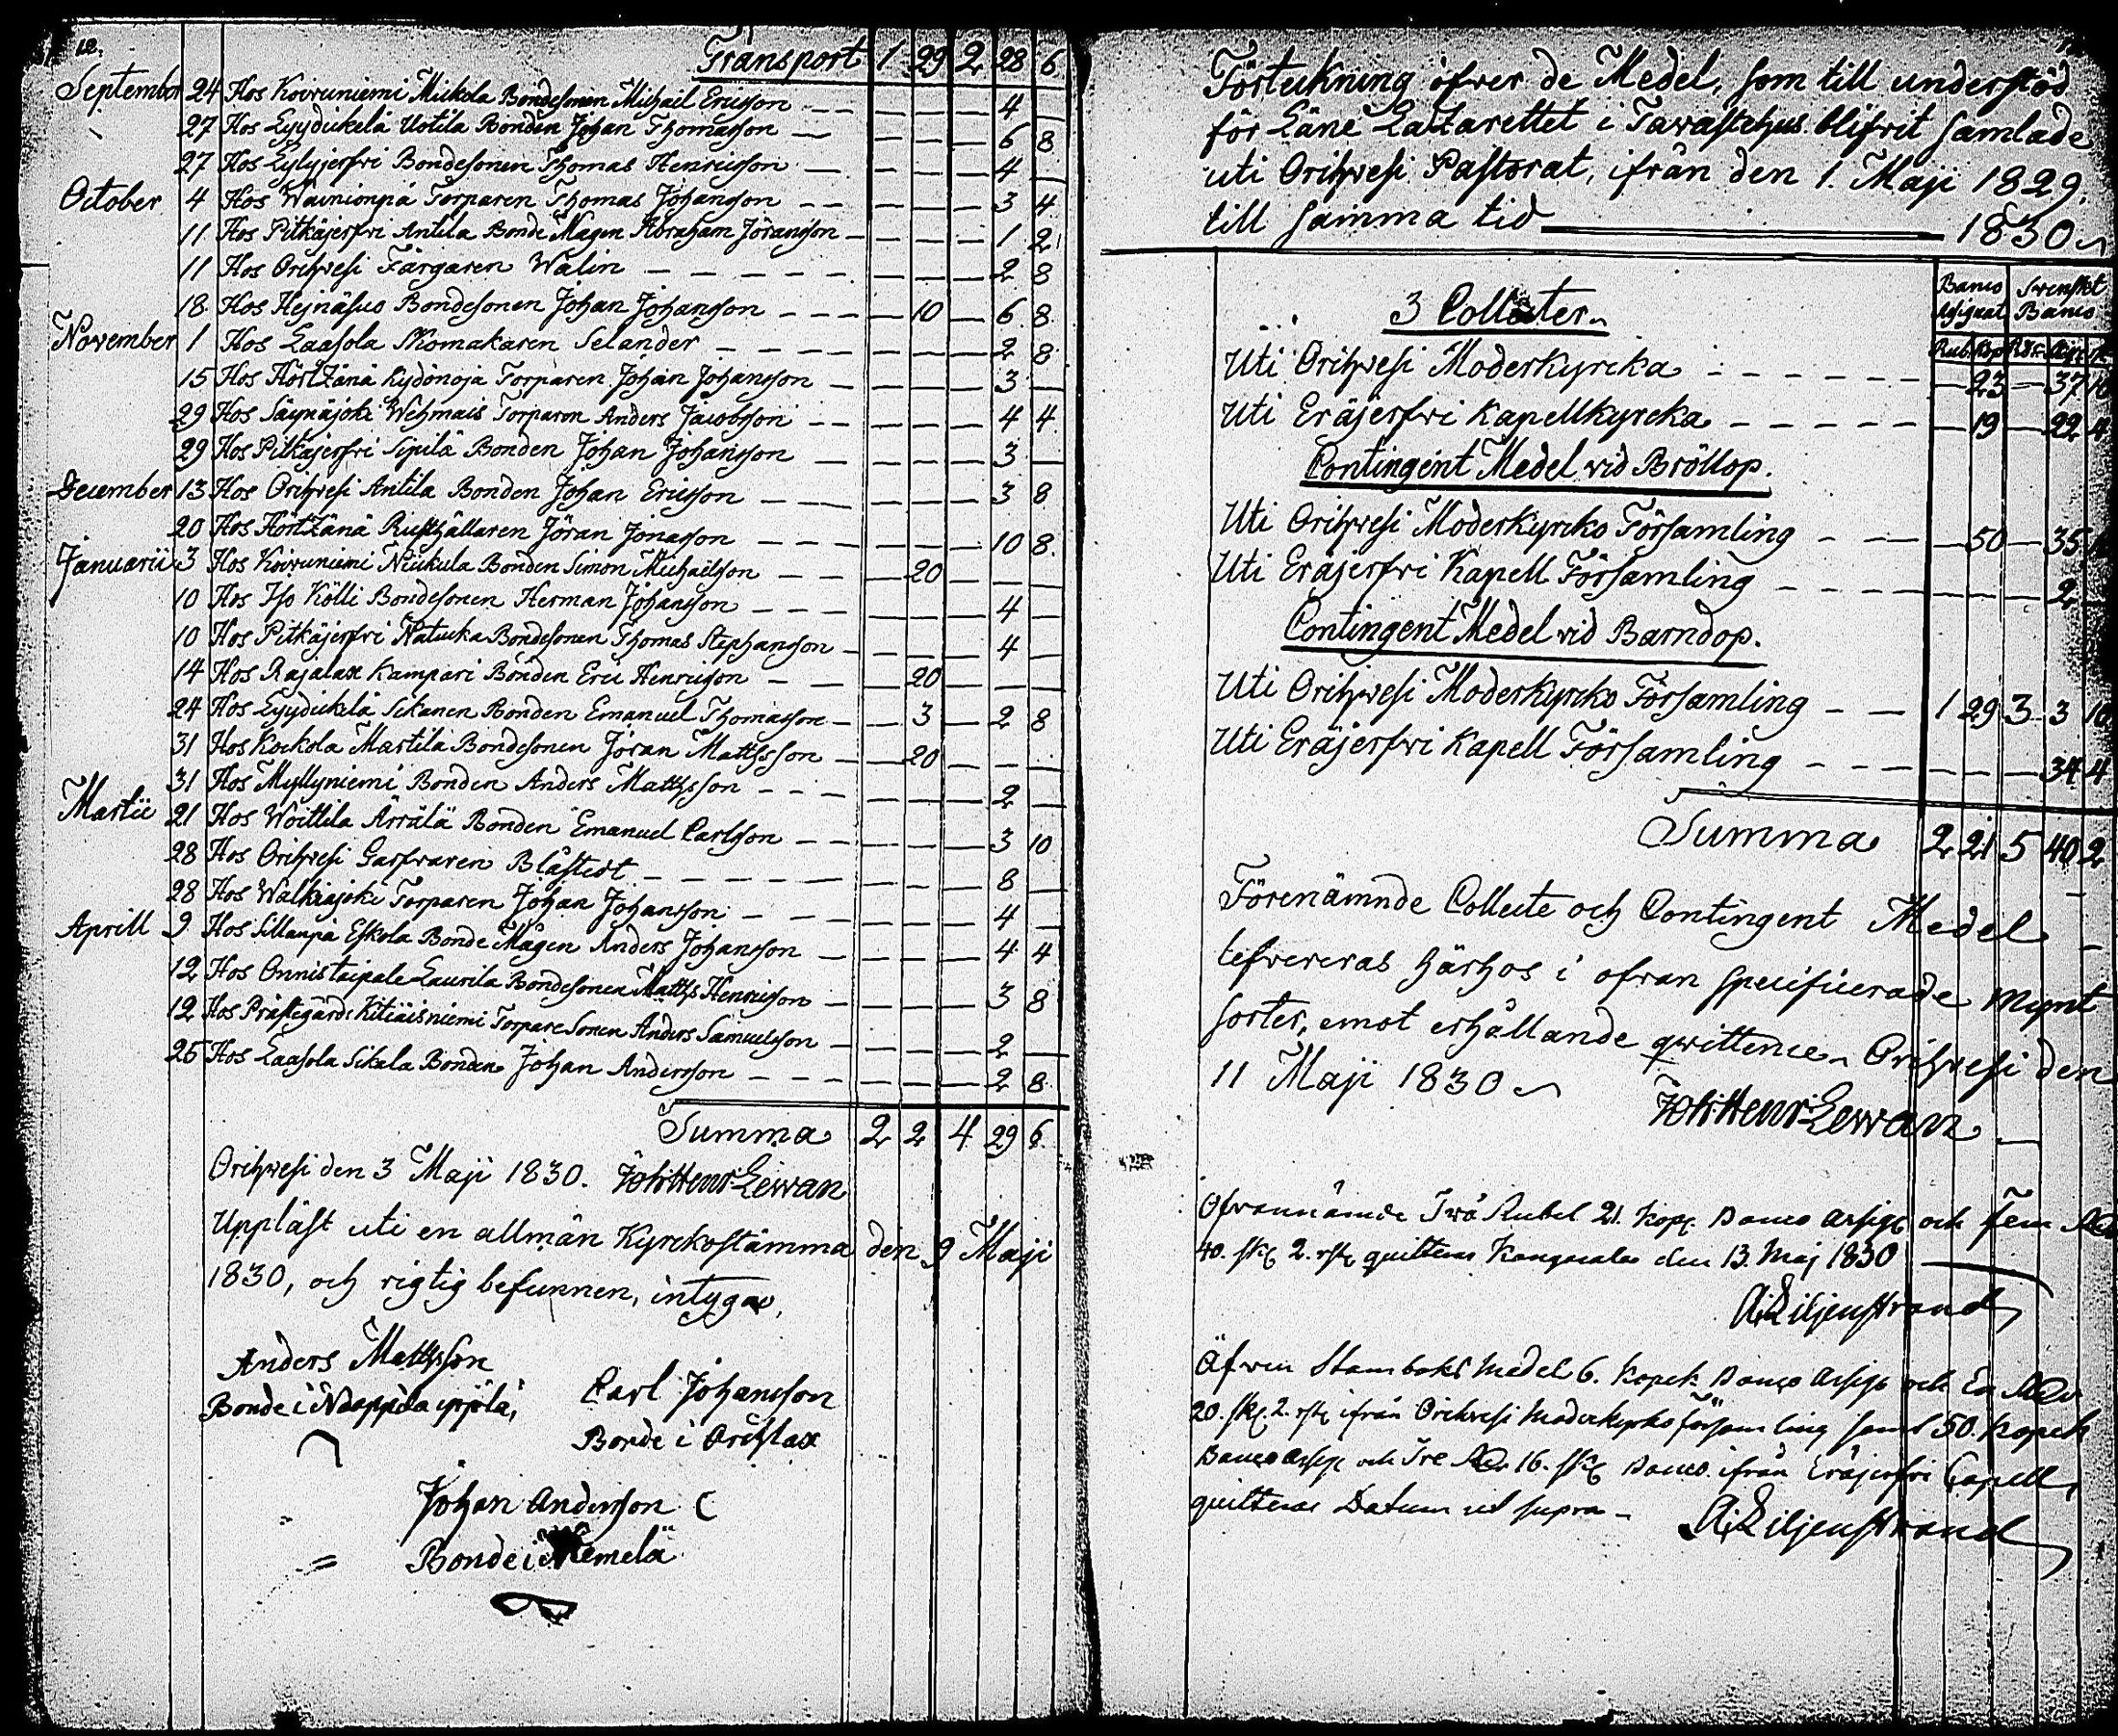 12.
Transport 1 29 2 28 6
September 24 Hos Koivuniemi Mickola Bondesonen Michail Ericsson — — — — 4 —
27 Hos Lyydickelä Uotila Bonden Johan Thomasson — — — — 6 8
27 Hos Lylyjerfvi Bondesonen Thomas Henricsson — — — — 4 —
October 4 Hos Wainionpä Torparen Thomas Johansson — — — — 3 4
11 Hos Pitkäjerfvi Antila Bonde Mågen Abraham Jöransson — — — — 1 2
11 Hos Orihvesi Färgaren Walin — — — — 2 8
18 Hos Hejnäsuo Bondesonen Johan Johansson — — 10 — 6 8
November 1 Hos Laasola Skomakaren Selander — — — — 2 8
15 Hos Hörtzänä Kydönoja Torparen Johan Johansson — — — — 3 —
29 Hos Säynäjoki Wehmais Torparen Anders Jacobsson — — — — 4 4
29 Hos Pitkäjerfvi Sipilä Bonden Johan Johansson — — — — 3 —
December 13 Hos Orihvesi Antila Bonden Johan Ericsson — — — — 3 8
20 Hos Hörtzänä Rusthållaren Jöran Jonasson — — — — 10 8
Januarii 3 Hos Koivuniemi Niukula Bonden Simon Michailsson — — 20 — — —
10 Hos Iso Kölli Bondesonen Herman Johansson — — — — 4 —
10 Hos Pitkäjerfvi Natucka Bondesonen Thomas Stephansson — — — — 4 —
14 Hos Rajalax Kampari Bonden Eric Henricsson — — 20 — — —
24 Hos Lyydickelä Sikanen Bonden Emanuel Thomasson — — 3 — 2 8
31 Hos Kockola Martila Bondesonen Jöran Mattsson — — 20 — — —
31 Hos Myllyniemi Bonden Anders Mattsson — — — — 2 —
Martii 21 Hos Woittila Ärrälä Bonden Emanuel Carlsson — — — — 3 10
28 Hos Orihvesi Garfvaren Blåstedt — — — — 8 —
28 Hos Walkiajoki Torparen Johan Johansson — — — — 4 —
Aprill 9 Hos Sillanpä Eskola Bonde Mågen Anders Johansson — — — — 4 4
12 Hos Onnistaipale Laurila Bondesonen Matths Henricsson — — — — 3 8
12 Hos Prästegårds Kitiäisniemi Torpare Sonen Anders Samuelsson — — — — 2 —
25 Hos Laasola Sikala Bonden Johan Andersson — — — — 2 8
Summa 2 2 4 29 6
Orihvesi den 3 Maji 1830. Joh: Henr: Lewan
Uppläst uti en allmän Kyrckostämma den 9 Maji
1830, och rigtig befunnen, intygar,
Anders Mattsson
Bonde i
Carl Johansson
Bonde i Orihlax
Johan Andersson
Bonde i Niemelä
Förteckning öfver de Medel, som till understöd
för Läne Lazarettet i Tavastehus blifvit samlade
uti Orihvesi Pastorat, ifrån den 1. Maji 1829,
till samma tid 1830
Banco Assignat Svenskt Banco
Rub. Kop. Rdr. Sk. r.
3 Collecter
Uti Orihvesi Moderkyrcka — 23 — 37 10
Uti Eräjerfvi Kapellkyrcka — 19 — 22 4
Contingent Medel vid Bröllop.
Uti Orihvesi Moderkyrcko Församling — 50 — 35
Uti Eräjerfvi Kapell Församling — — — 2
Contingent Medel vid Barndop.
Uti Orihvesi Moderkyrcko Församling — 1 29 3 3 10
Uti Eräjerfvi Kapell Församling — — — 34 4
Summa 2 21 5 40 2
Förenämnde Collecte och Contingent Medel
lefvereras härhos i ofvan specificerade Mynt
sorter, emot erhållande qvittence. Orihvesi den
11 Maji 1830
Joh: Henr: Lewan
Ofvannämde Två Rubel 21. kop: Banco Assign: och fem Rdr
40. sk: 2. rst: quitteras Kangasala den 13. Maj 1830
A: Liljenstrand
Äfven Stamboks medel 6. kopek Banco Assign: och En Rdr
20. sk: 2. rst: ifrån Orihvesi Moderkyrko församling samt 50. kopek
Banco Assign: och Tre Rdr 16. sk: Banco ifrån Eräjerfvi Capell,
quitteras Datum ut supra —
A: Liljenstrand